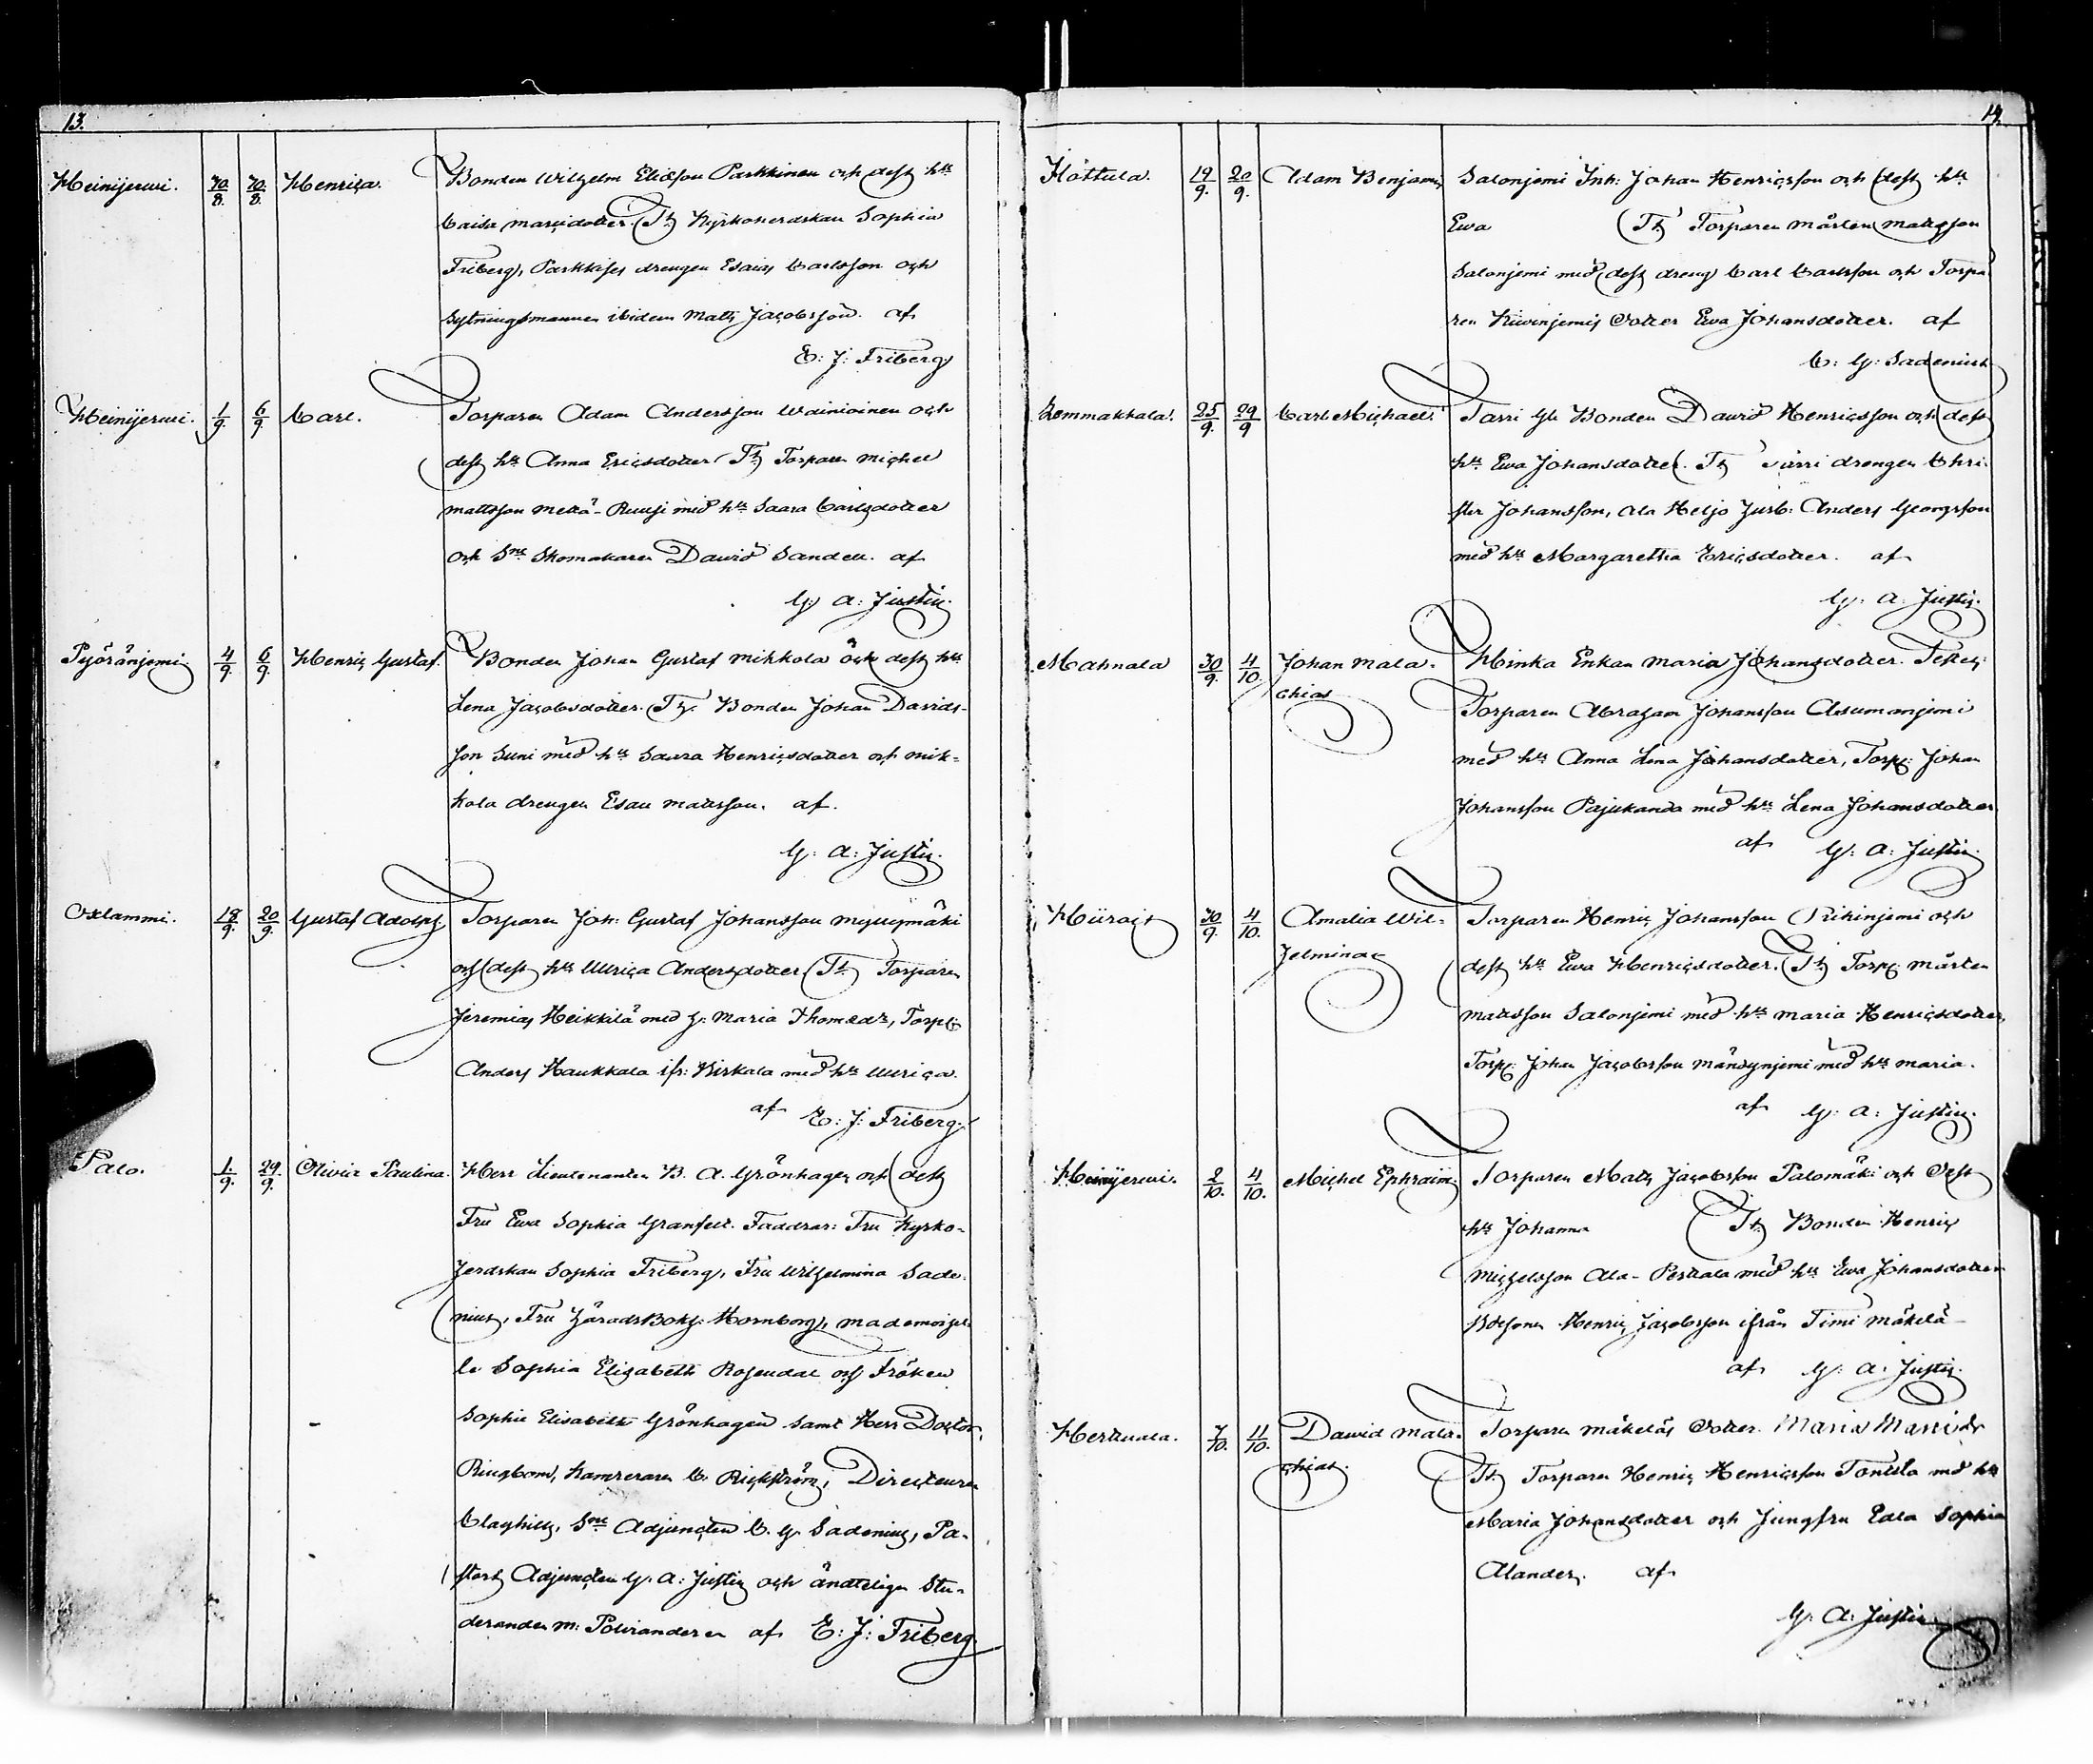 13.
Heinijerwi. 30/8. 30/8. Henrica. Bonden Wilhelm Eliæson Parkkinen och dess hu
Caisa Marcidotter. Tt. Kyrkoherdskan Sophia
Friberg, Parkkises drengen Esaias Carlsson och
Sytningsmannen ibidem Matts Jacobsson. af
E: J: Friberg
Heinijerwi. 1/9. 6/9. Carl. Torparen Adam Andersson Wäinioinen och
dess hu Anna Ericsdotter Tt. Torparen Michel
Mattsson Mettä-Ruusi med hu Saara Carlsdotter
och Sne Skomakaren David Sandell. af
G: A: Justin.
Pyöränjemi 4/9. 6/9. Henric Gustaf. Bonden Johan Gustaf Mikkola och dess hu
Lena Jacobsdotter. Tt. Bonden Johan Davids-
son Suni med hu Saara Henricsdotter och Mik-
kola drengen Esau Matsson. af.
G: A: Justin.
Oxlammi. 18/9. 20/9. Gustaf Adolph Torparen Joh: Gustaf Johansson Myllymäki
och dess hu Ullrica Andersdotter Tt. Torparen
Jeremias Heikkilä med h: Maria Thomædr, Torp:
Anders Haukkala ifr: Birkala med hu Ullrica.
af E: J: Friberg.
Palo. 1/9. 29/9. Olivia Paulina. Herr Lieutenanten B. A. Grönhagen och dess
Fru Ewa Sophia Granfelt. Faddrar: Fru Kyrko-
herdskan Sophia Friberg, Fru Wilhelmina Sade-
nius, Fru HäradsBokh: Hornborg, Mademoisel-
le Sophia Elisabeth Rosendal och Fröken
Sophie Elisabeth Grönhagen samt Herr Doctor
Ringbom, Kamreraren C. Rickström, Directeuren
Clayhills, Sne Adjuncten C. G. Sadenius, Pa-
stors Adjuncten G. A: Justin och Studerande
deranden M: Polviander af E: J: Friberg
14.
Höttula. 19/9. 20/9. Adam Benjamin Salonjemi Inh: Johan Henricsson och dess hu
Ewa Tt. Torparen Mårten Mattsson
Salonjemi med dess dreng Carl Carlsson och Torpa
ren Kiwinjemis Dotter Ewa Johansdotter. af
C: G: Sadenius
Kommakkala. 25/9. 29/9 Carl Michael. Tarri Gl Bonden David Henricsson och dess
hu Ewa Johansdotter. Tt. Tarri drengen Chri-
ster Johansson, Ala Heljo Husb: Anders Georgsson
med hu Margaretha Ericsdotter. af
G: A: Justin.
Mahnala 30/9. 4/10. Johan Mala-
chias Hinka Enkan Maria Johansdotter. Testes:
Torparen Abraham Johansson Assumanjemi
med hu Anna Lena Johansdotter, Torp: Johan
Johansson Pajukanda med hu Lena Johansdotter
af G: A: Justin.
Hiirois 30/9. 4/10. Amalia Wil-
helmina Torparen Henric Johansson Rihinjemi och
dess hu Ewa Henricsdotter. Tt. Torp: Mårten
Mattsson Salonjemi med hu Maria Henricsdotter,
Torp: Johan Jacobsson Mändynjemi med hu Maria.
af G: A: Justin.
Heinijerwi. 2/10. 4/10. Michel Ephraim. Torparen Mats Jacobsson Palomäki och dess
hu Johanna Tt. Bonden Henric
Michelsson Ala-Perttala med hu Ewa Johansdotter
Henric Jacobsson ifrån Timi Mäkelä
af G: A: Justin.
Herttuala. 7/10. 11/10. David Mala-
chias. Torparen Mäkeläs Dotter. Maria Marcidr
Tt. Torparen Henric Henricsson Tontila med hu
Maria Johansdotter och Jungfru Edla Sophia
Alander. af
G: A: Justin